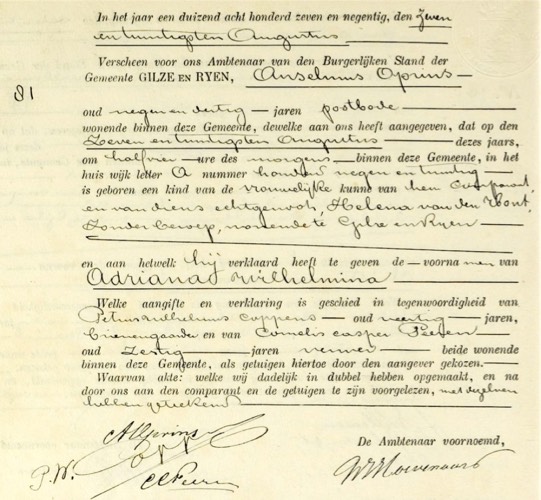 In het jaar een duizend acht honderd zeven en negentig, den zeven
en twintigsten Augustus
Verscheen voor ons Ambtenaar van den Burgerlijken Stand der
Gemeente GILZE EN RYEN, Anselmus Oprins
81
oud negen en dertig jaren postbode
wonende binnen deze Gemeente, dewelke aan ons heeft aangegeven, dat op den
Zeven en twintigsten Augustus dezes jaars,
om half vier ure des morgens binnen deze Gemeente, in het
huis wijk letter A nummer honderd negen en twintig
is geboren een kind van de vrouwelijke kunne van hem Comparant
en van diens echtgenoot, Helena van den Hout,
zonder beroep, wonende te Gilze en Ryen
en aan hetwelk hij verklaard heeft te geven de voornamen van
Adriana Wilhelmina
Welke aangifte en verklaring is geschied in tegenwoordigheid van
Petrus Wilhelmus Coppens oud veertig jaren,
en van Cornelis Casper
oud zestig jaren beide wonende
binnen deze Gemeente, als getuigen hiertoe door den aangever gekozen.
Waarvan akte: welke wij dadelijk in dubbel hebben opgemaakt, en na
door ons aan den comparant en de getuigen te zijn voorgelezen, met dezelven
hebben geteekend
A Oprins
De Ambtenaar voornoemd,
P.W. Copp